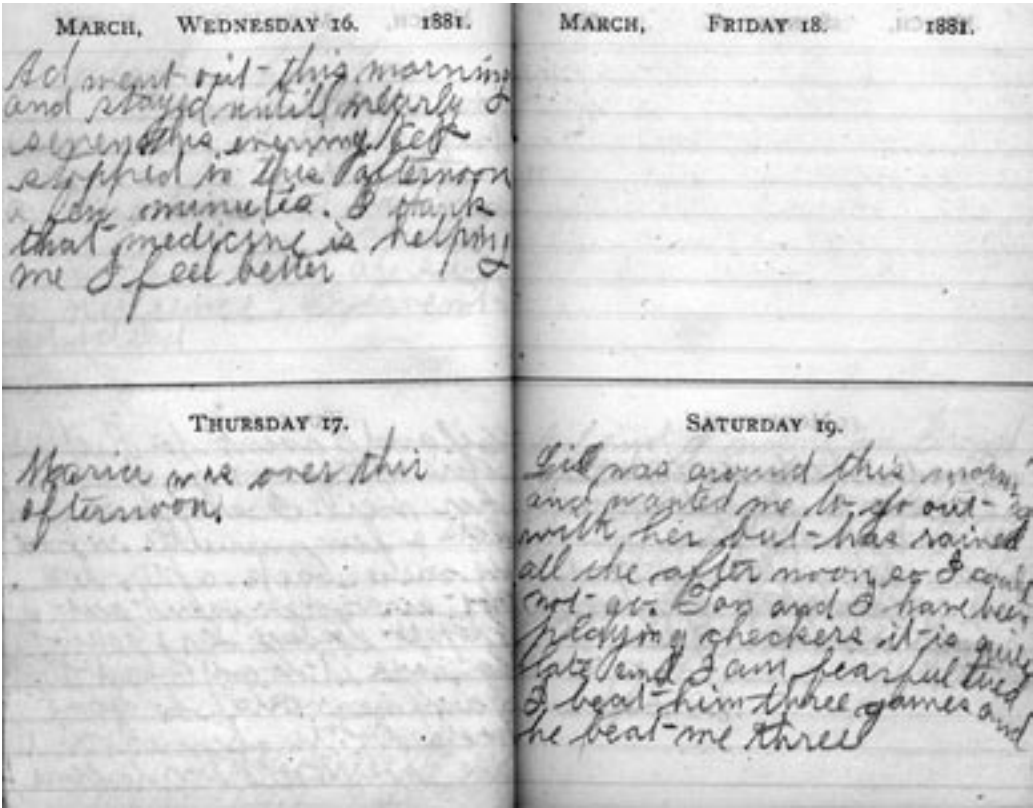 MARCH, WEDNESDAY 16. 1881.
Ad went out this morning
and stayed untill nearly
seven this evening
stopped in this afternoon
a few minutes. I think
that medicine is helping
me I feel better
THURSDAY 17.
was over this
afternoon.
MARCH, FRIDAY 18. 1881.
SATURDAY 19.
Lil was around this morn
and wanted me to go out
with her but has rained
all the after noon so I could
not go. and I have been
playing checkers it is quite
late and I am fearful tired
I beat him three games and
he beat me three